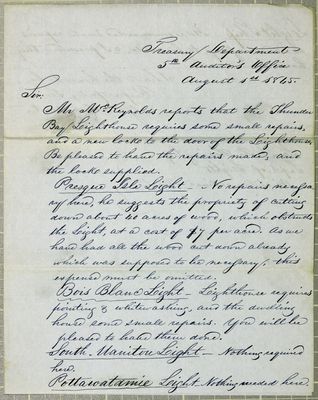 Treasury Department
5th Auditor's Office
August 1st 1845.
Sir.
Mr. McReynolds reports that the Thunder
Bay Lighthouse requires some small repairs,
and a new locke to the door of the Lighthouse,
Be pleased to have the repairs made, and
the locke supplied.
Presque Isle Light - No repairs necessa
ry here, he suggests the propriety of cutting
down about 40 acres of wood, which obstructs
the Light, at a cost of $7 per acre. As we
have had all the wood cut down already
which was supposed to be necessary, this
expense must be omitted.
Bois Blanc Light - Lighthouse requires
pointing & whitewashing, and the dwelling
house some small repairs. You will be
pleased to have them done.
South Manitou Light - Nothing required
here.
Pottawatamie Light Nothing needed here.